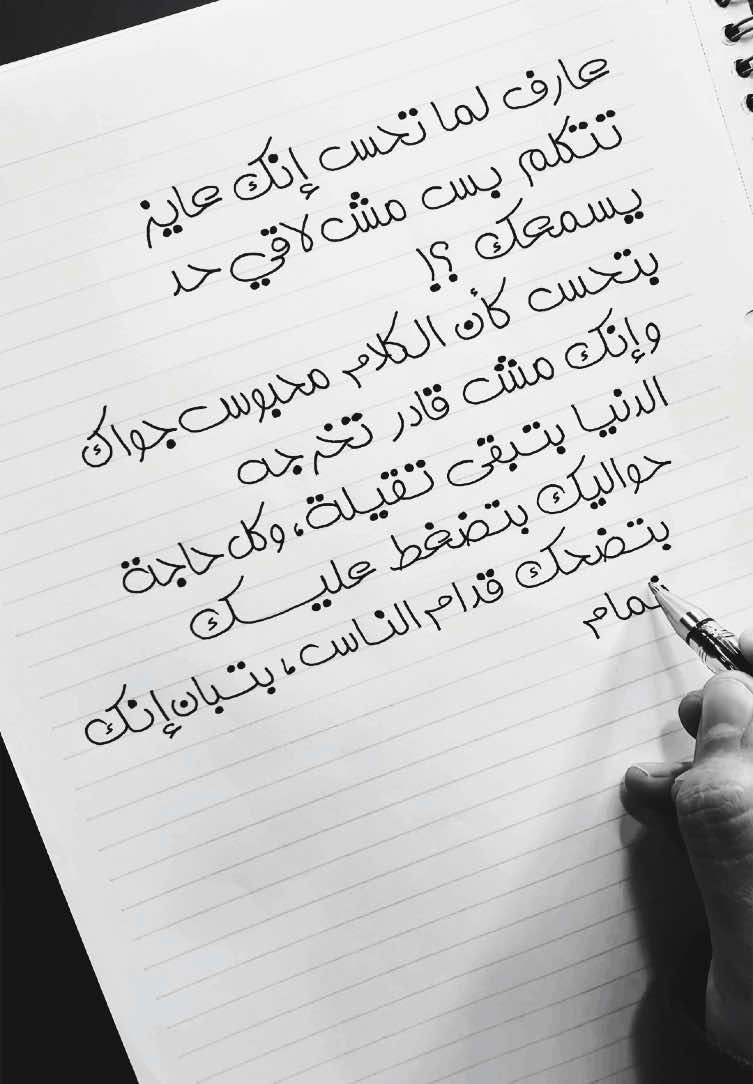 عارف لما تحس إنك عايز
تتكلم بس مش لاقي حد
يسمعك ؟!
بتحس كأن الكلام محبوس جواك
وإنك مش قادر تخرجه
الدنيا بتبقى تقيلة، وكل حاجة
حواليك بتضغط عليـــك
بتضحك قدام الناس، بتبان إنك
تمام